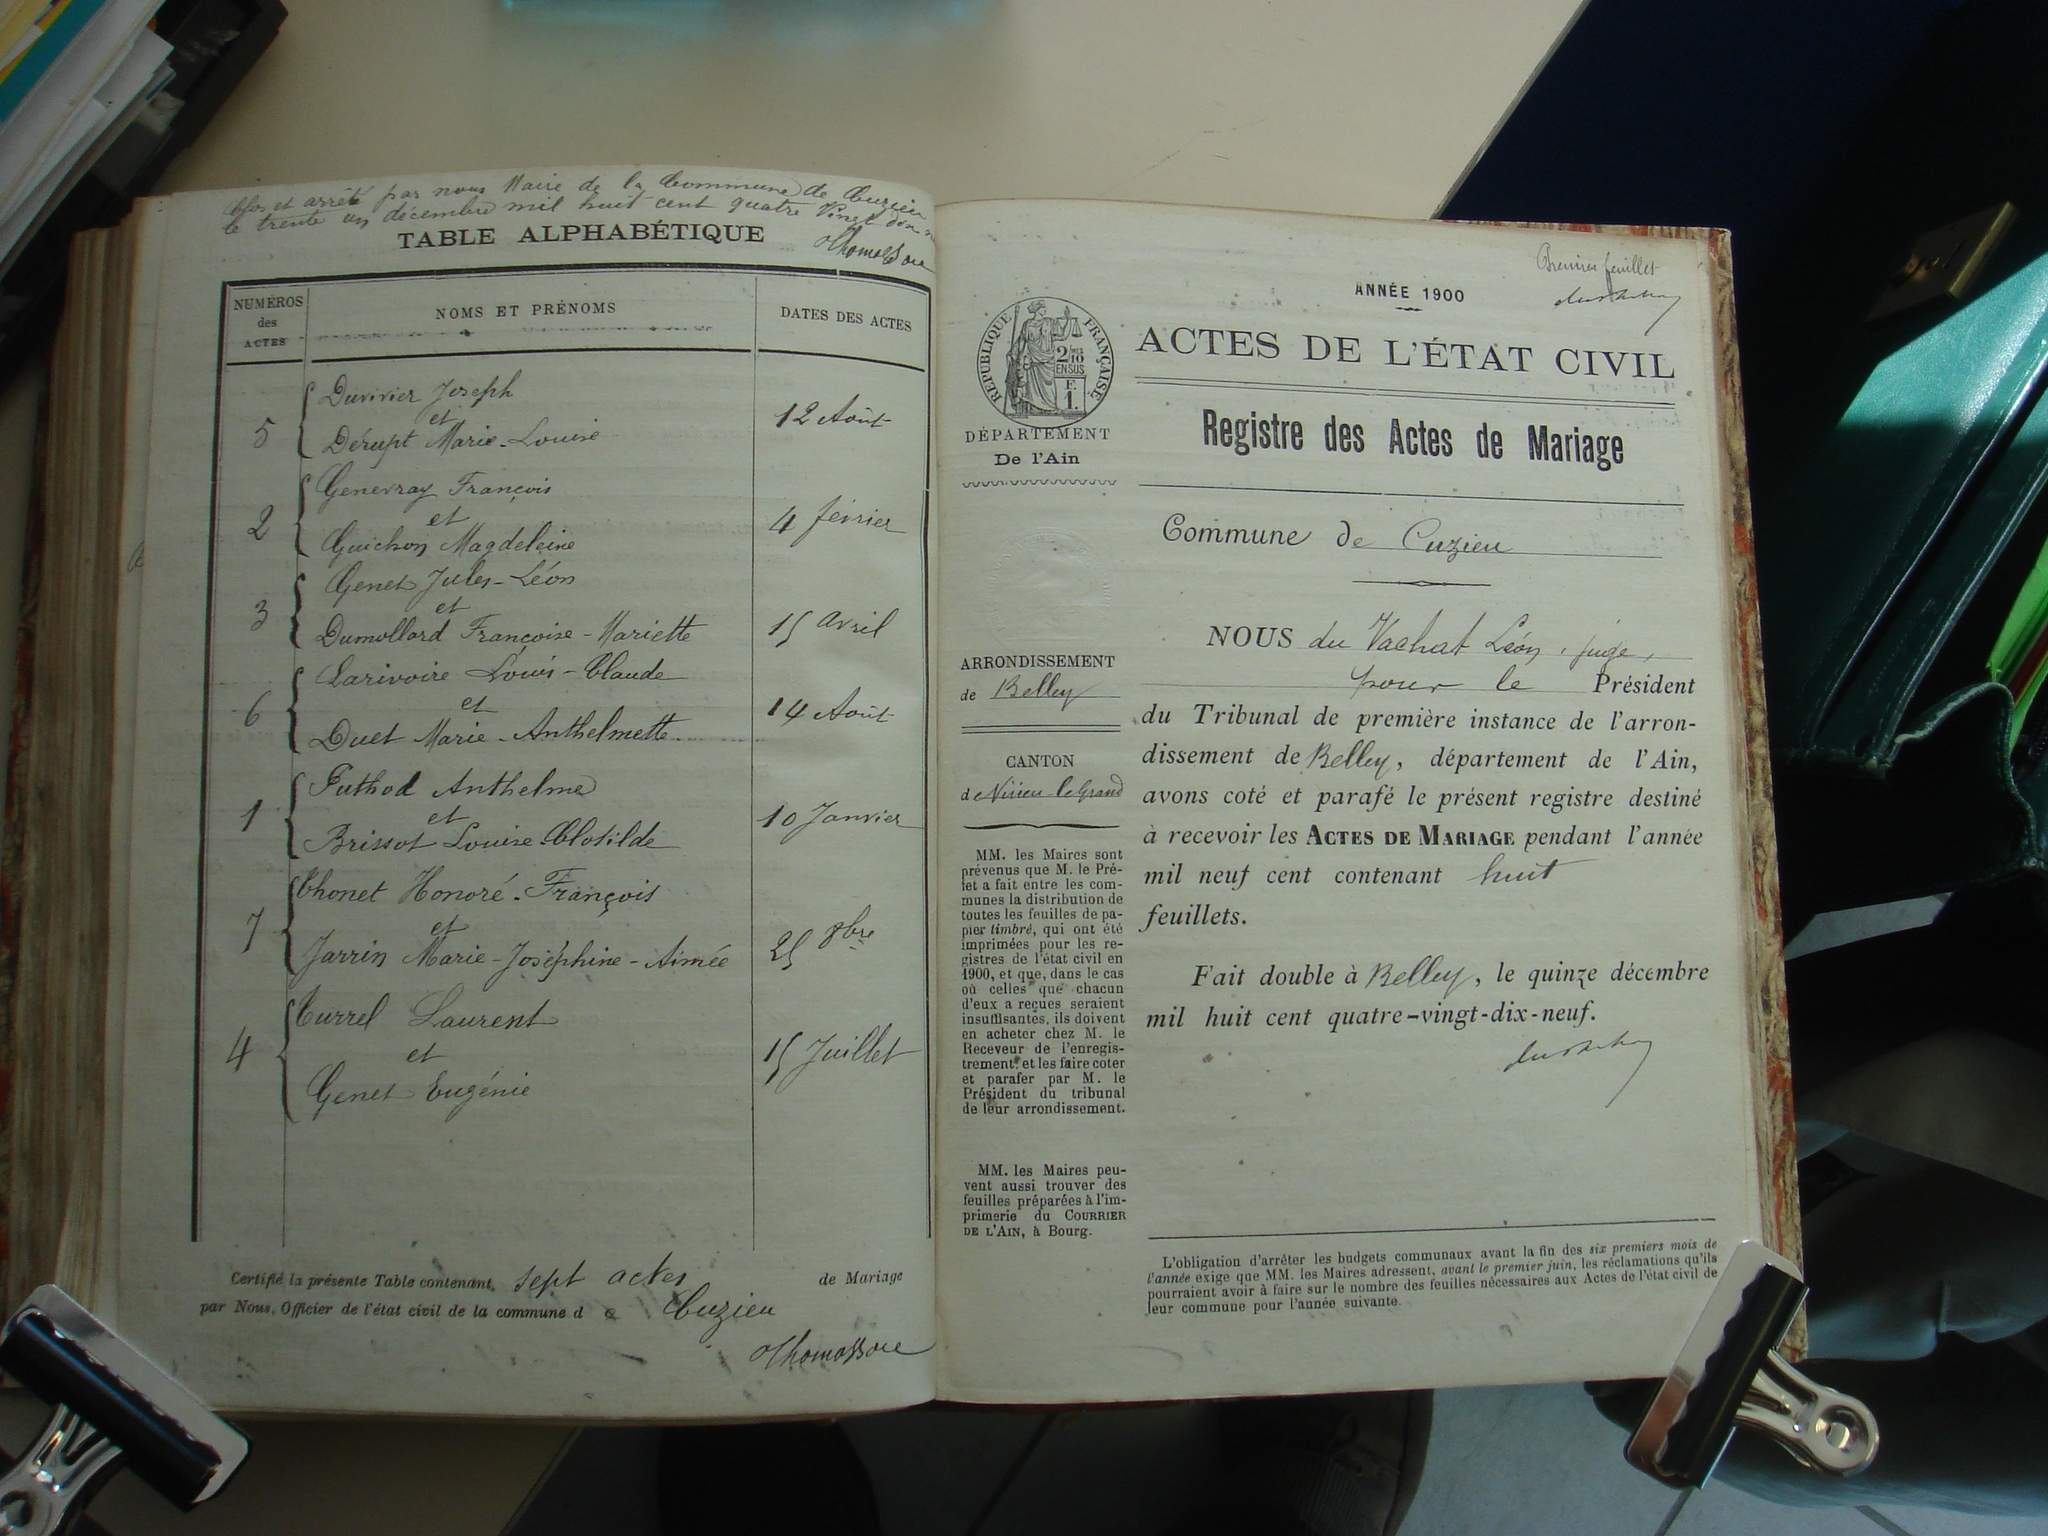 Clos et arrêté par nous Maire de la Commune de Cuzieu
le trente un décembre mil huit cent quatre Vingt dix n
Thomasson
TABLE ALPHABÉTIQUE
NUMÉROS
des
ACTES
NOMS ET PRÉNOMS
DATES DES ACTES
Duvivier Joseph
et
5
Dérupt Marie-Louise
12 Août
Genevray François
et
2
Guichon Magdeleine
4 février
Genet Jules-Léon
et
3
Dumollard Françoise-Mariette
15 avril
Larivoire Louis-Claude
et
6
Duet Marie-Anthelmette
14 Août
Puthod Anthelme
et
1
Brissot Louise Clotilde
10 Janvier
Thonet Honoré-François
et
7
Jarrin Marie-Joséphine-Aimée
25 8bre
Turrel Laurent
et
4
Genet Eugénie
15 Juillet
Certifié la présente Table contenant sept actes de Mariage
par Nous, Officier de l'état civil de la commune de Cuzieu
Thomasson
Premier feuillet
ANNÉE 1900
RÉPUBLIQUE FRANÇAISE
2 10
EN SUS
F.
1.
ACTES DE L'ÉTAT CIVIL
DÉPARTEMENT
De l'Ain
Registre des Actes de Mariage
Commune de Cuzieu
ARRONDISSEMENT
de Belley
CANTON
de Virieu-le-Grand
MM. les Maires sont
prévenus que M. le Pré-
fet a fait entre les com-
munes la distribution de
toutes les feuilles de pa-
pier timbré, qui ont été
imprimées pour les re-
gistres de l'état civil en
1900, et que, dans le cas
où celles que chacun
d'eux a reçues seraient
insuffisantes, ils doivent
en acheter chez M. le
Receveur de l'enregis-
trement et les faire coter
et parafer par M. le
Président du tribunal
de leur arrondissement.
MM. les Maires peu-
vent aussi trouver des
feuilles préparées à l'im-
primerie du COURRIER
DE L'AIN, à Bourg.
NOUS du Vachat Léon, juge,
pour le Président
du Tribunal de première instance de l'arron-
dissement de Belley, département de l'Ain,
avons coté et parafé le présent registre destiné
à recevoir les ACTES DE MARIAGE pendant l'année
mil neuf cent contenant huit
feuillets.
Fait double à Belley, le quinze décembre
mil huit cent quatre-vingt-dix-neuf.
L'obligation d'arrêter les budgets communaux avant la fin des six premiers mois de
l'année exige que MM. les Maires adressent, avant le premier juin, les réclamations qu'ils
pourraient avoir à faire sur le nombre des feuilles nécessaires aux Actes de l'état civil de
leur commune pour l'année suivante.